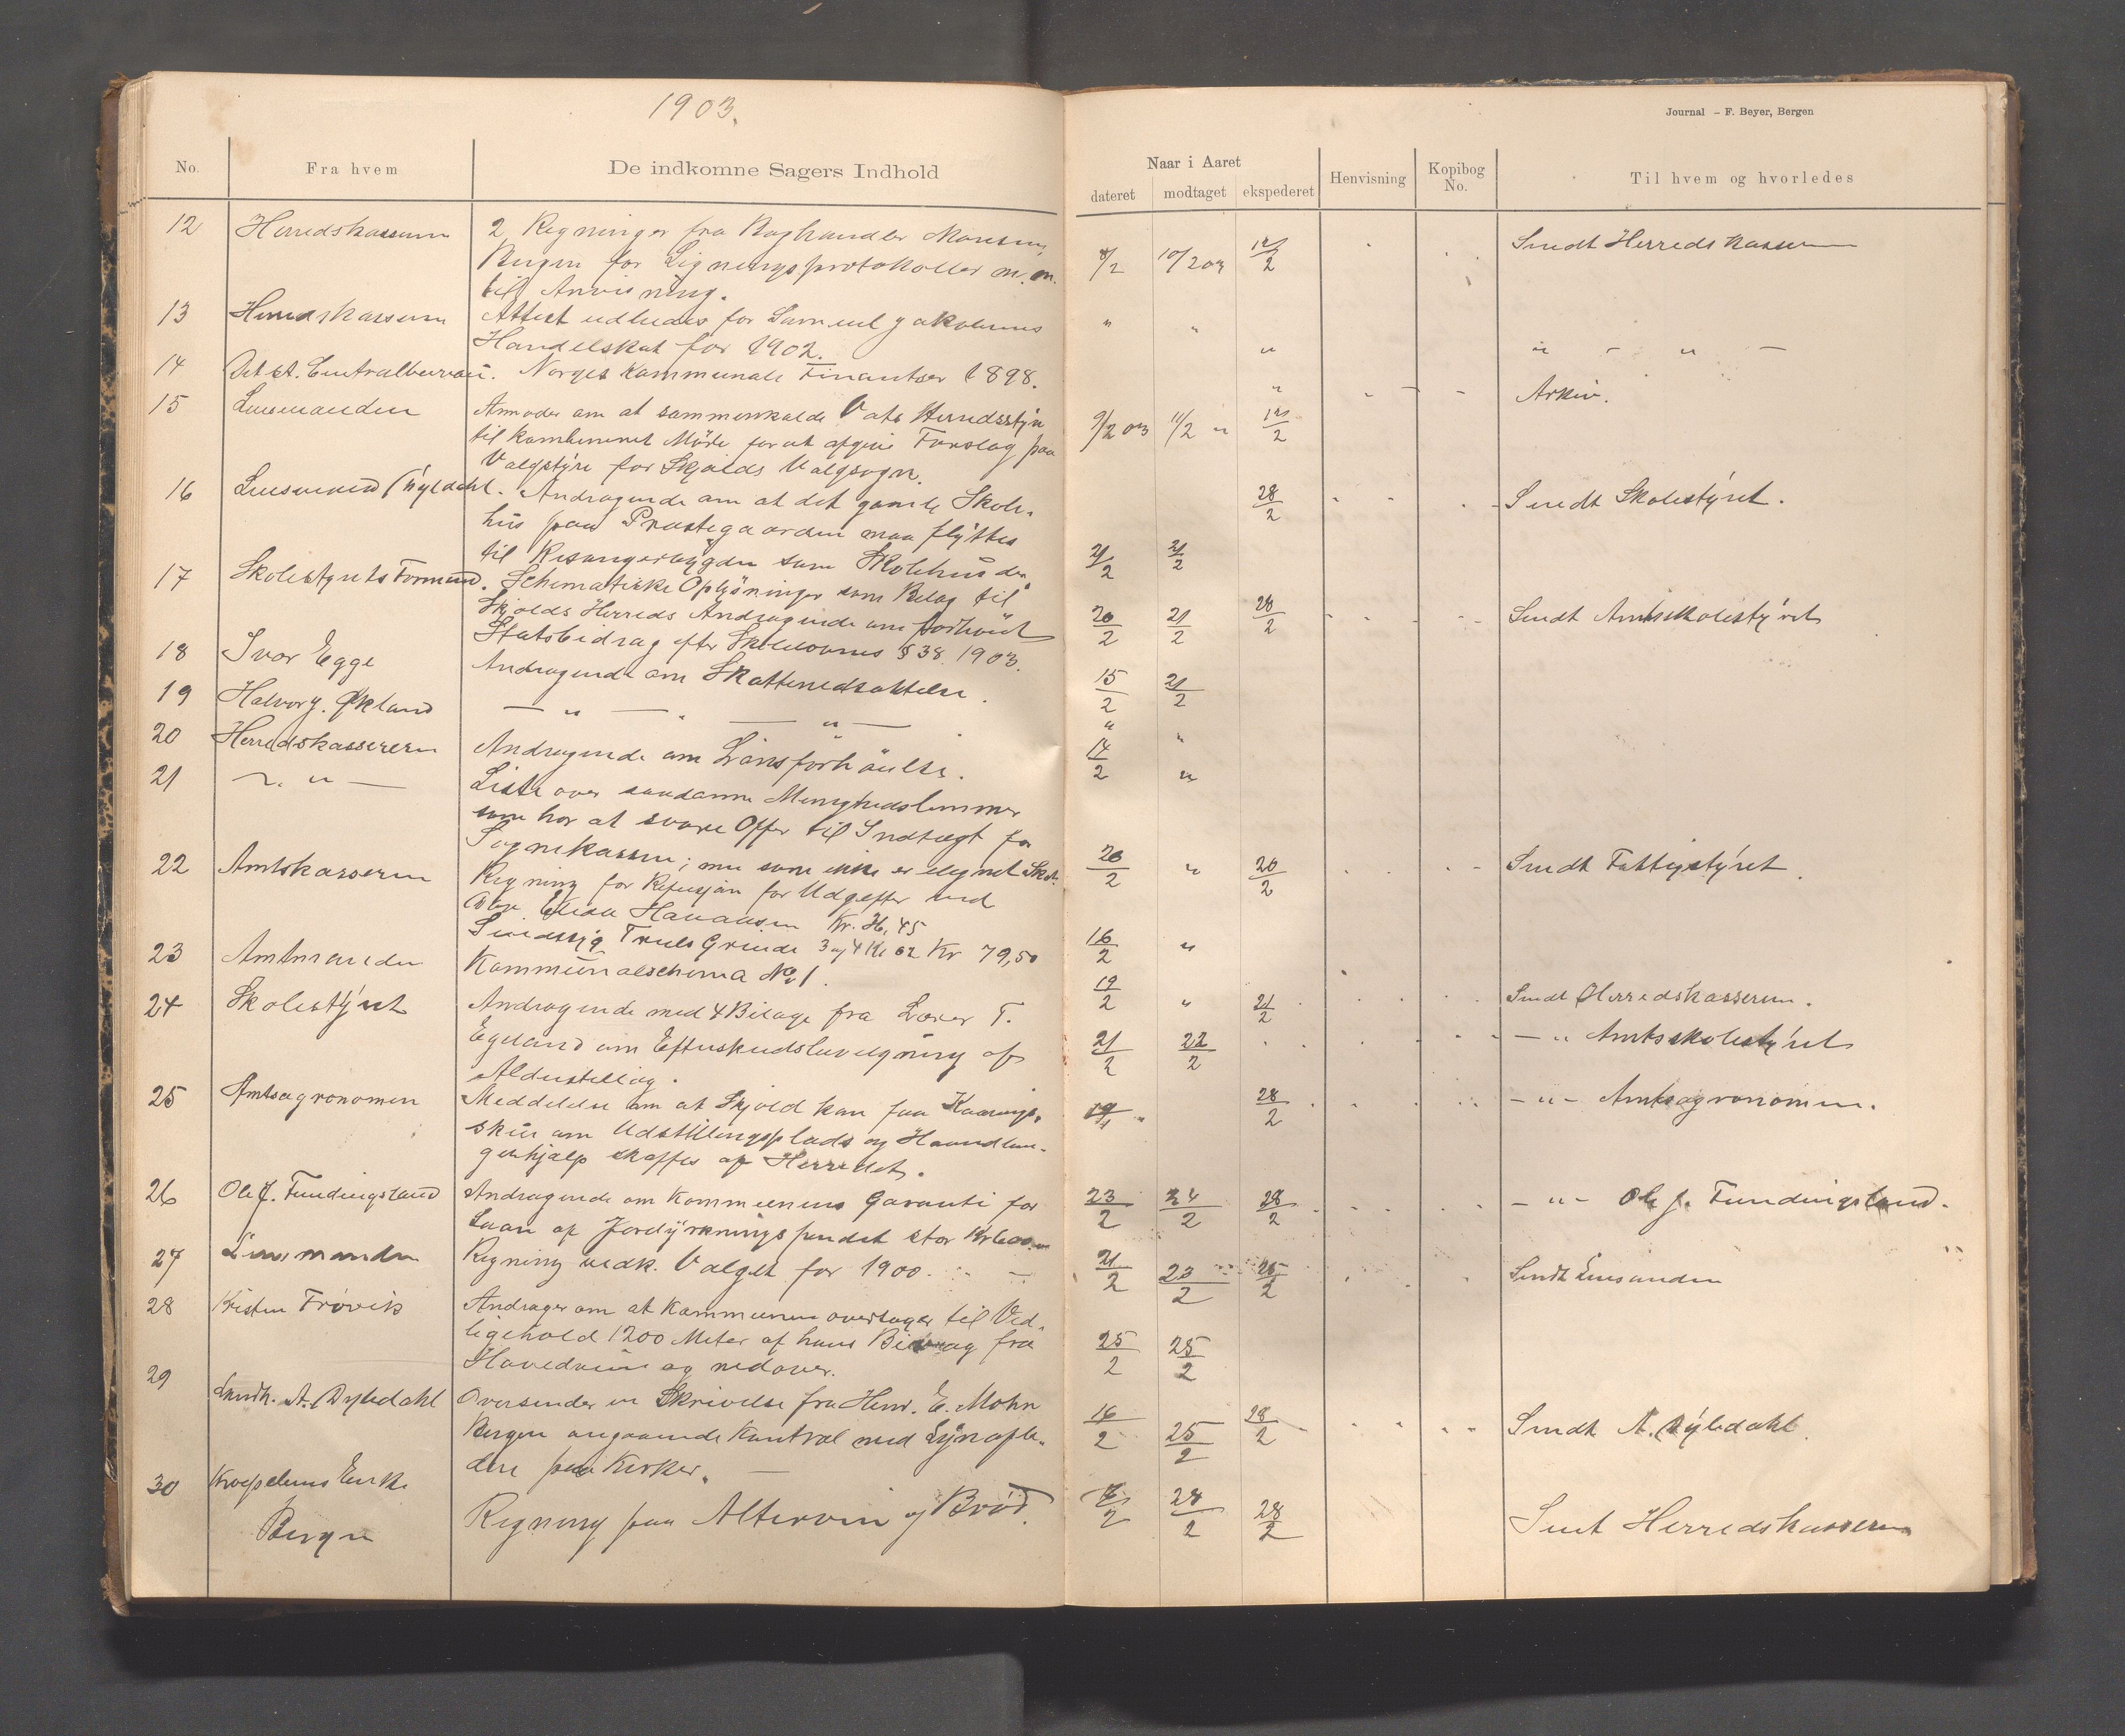 1903.
Journal – F. Beyer, Bergen
No.
Fra hvem
De indkomne Sagers Indhold
Naar i Aaret
dateret
modtaget
ekspederet
Henvisning
Kopibog
No.
Til hvem og hvorledes
12 Herredskasseren 2 Regninger fra Boghandler
Bergen for Ligningsprotokoller m.m. 10/2 03 12/2 Sendt Herredskasseren
til Anvisning.
13 Herredskasseren Attest udstedes for Samuel Jakobsens " "
Handelskat for 1902. "
14 Det st. Centralbureau. Norges Kommunale Finantser 1898. " Arkiv.
15 Lensmanden Anmoder om at sammenkalde Vats Herredsstyre 9/2 03 11/2 " 12/2
til kombineret Møde for at afgive Forslag paa
Valgstyre for Skjolds Valgsogn.
16 Lensmand Byledahl. Andragende om at det gamle Skole- 28/2 Sendt Skolestyret.
hus paa Prestegaarden maa flyttes
til som Skolehus der. 21/2 21/2
17 Skolestyrets Formand. Schematiske Oplysninger som Bilag til
Skjolds Herreds Andragende om forhøiet 20/2 21/2 28/2 Sendt Amtsskolestyret
Statsbidrag efter Skolelovens § 38. 1903.
18 Ivar Egge Andragende om Skattenedsættelse. 15/2 21/2
19 Halvor J. Økland — " — — " — " "
20 Herredskasseren Andragende om Lønsforhøielse. 14/2 "
21 — " — Liste over saadanne Menighedslemmer
som har at svare Offer til Indtægt for
Sognekassen; men som ikke er ilignet Skat.
22 Amtskasseren Regning for Refusjon for Udgifter ved 20/2 " 20/2 Sendt Fattigstyret.
Kr. 45
Sindssyg Truls Grinde 3 og 4 Kv 02 Kr 79,50
23 Amtmanden Kommunalschema No 1. 16/2 "
24 Skolestyret Andragende med 4 Bilage fra Lærer T. 19/2 " 21/2 Sendt Herredskasseren.
Egeland om Efterskudsbevilgning af 21/2 22/2 — " Amtsskolestyret
Alderstillæg.
25 Amtsagronomen Meddelelse om at Skjold kan faa Kaarings- " 28/2 — " — Amtsagronomen.
skue om Udstillingsplads og Haandlan-
gerhjælp skaffes af Herredet.
26 Ole J. Fundingsland Andragende om Kommunens Garanti for 23/2 24/2 28/2 — " — Ole J. Fundingsland.
Laan af Jorddyrkningsfondet stor Kr
27 Lensmanden Regning vedk. Valget for 1900. 21/2 23/2 25/2 Sendt Lensmanden
28 Kristen Frøvik Andrager om at Kommunen overtager til Ved-
ligehold 1200 Meter af hans fra 25/2 25/2
Hovedveien og nedover.
29 A. Byledahl Oversender en Skrivelse fra Henr. E. Mohn 16/2 25/2 28/2 Sendt A. Byledahl.
Bergen angaaende Kontrol med Lynafle-
dere paa Kirker.
30 Kroepeliens Enke
Bergen Regning paa Altervin og Brød. 28/2 28/2 Sendt Herredskasseren